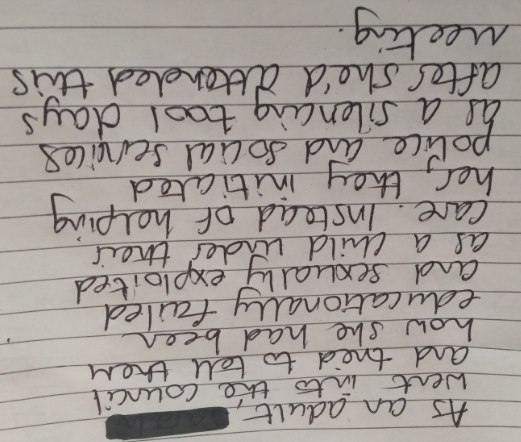 As an adult,
went into the council
and tried to tell them
how she had been
educationally failed
and sexually exploited
as a child under their
care. Instead of helping
her, they initiated
police and social services
as a silencing tool days
after she'd attended this
meeting.